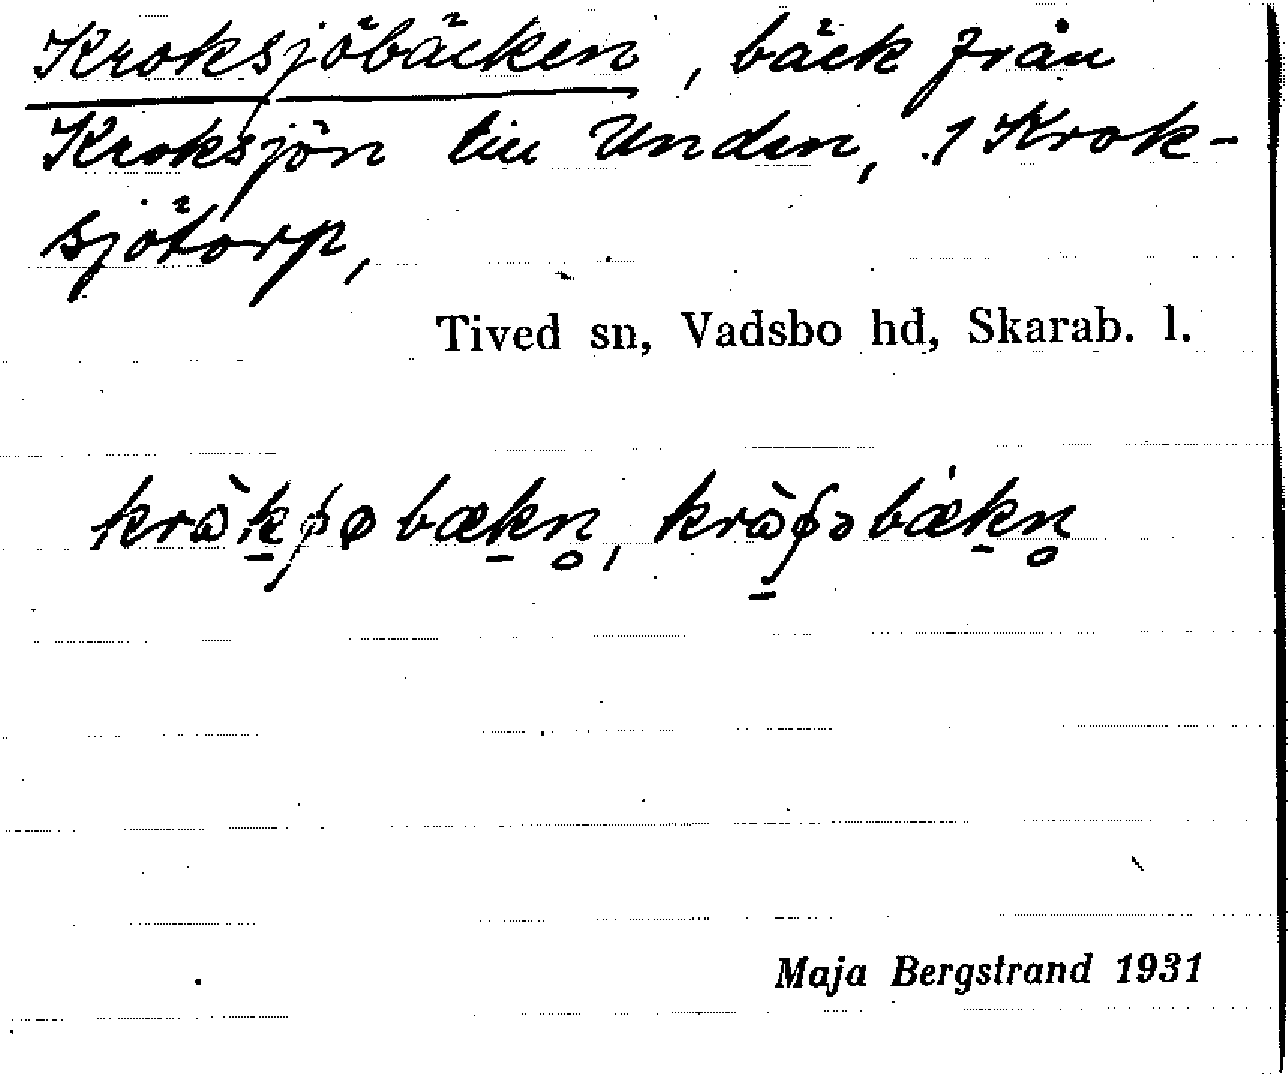 Kroksjöbäcken, bäck från
Kroksjön till Unden, 1 Krok-
sjötorp,
Tived sn, Vadsbo hd, Skarab. l.
Maja Bergstrand 1931